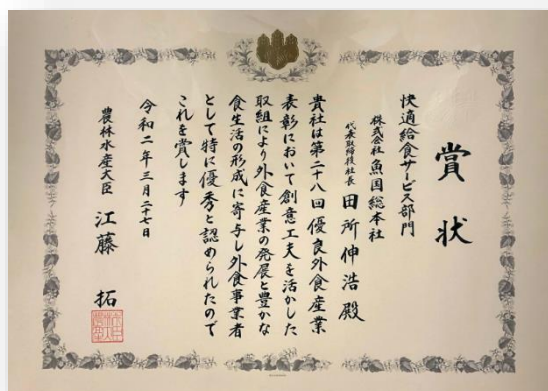 賞状
快適給食サービス部門
株式会社 魚国総本社
代表取締役社長 田所伸浩 殿
貴社は第二十八回優良外食産業
表彰において創意工夫を活かした
取組により外食産業の発展と豊かな
食生活の形成に寄与し外食事業者
として特に優秀と認められたので
これを賞します
令和二年三月二十七日
農林水産大臣 江藤 拓